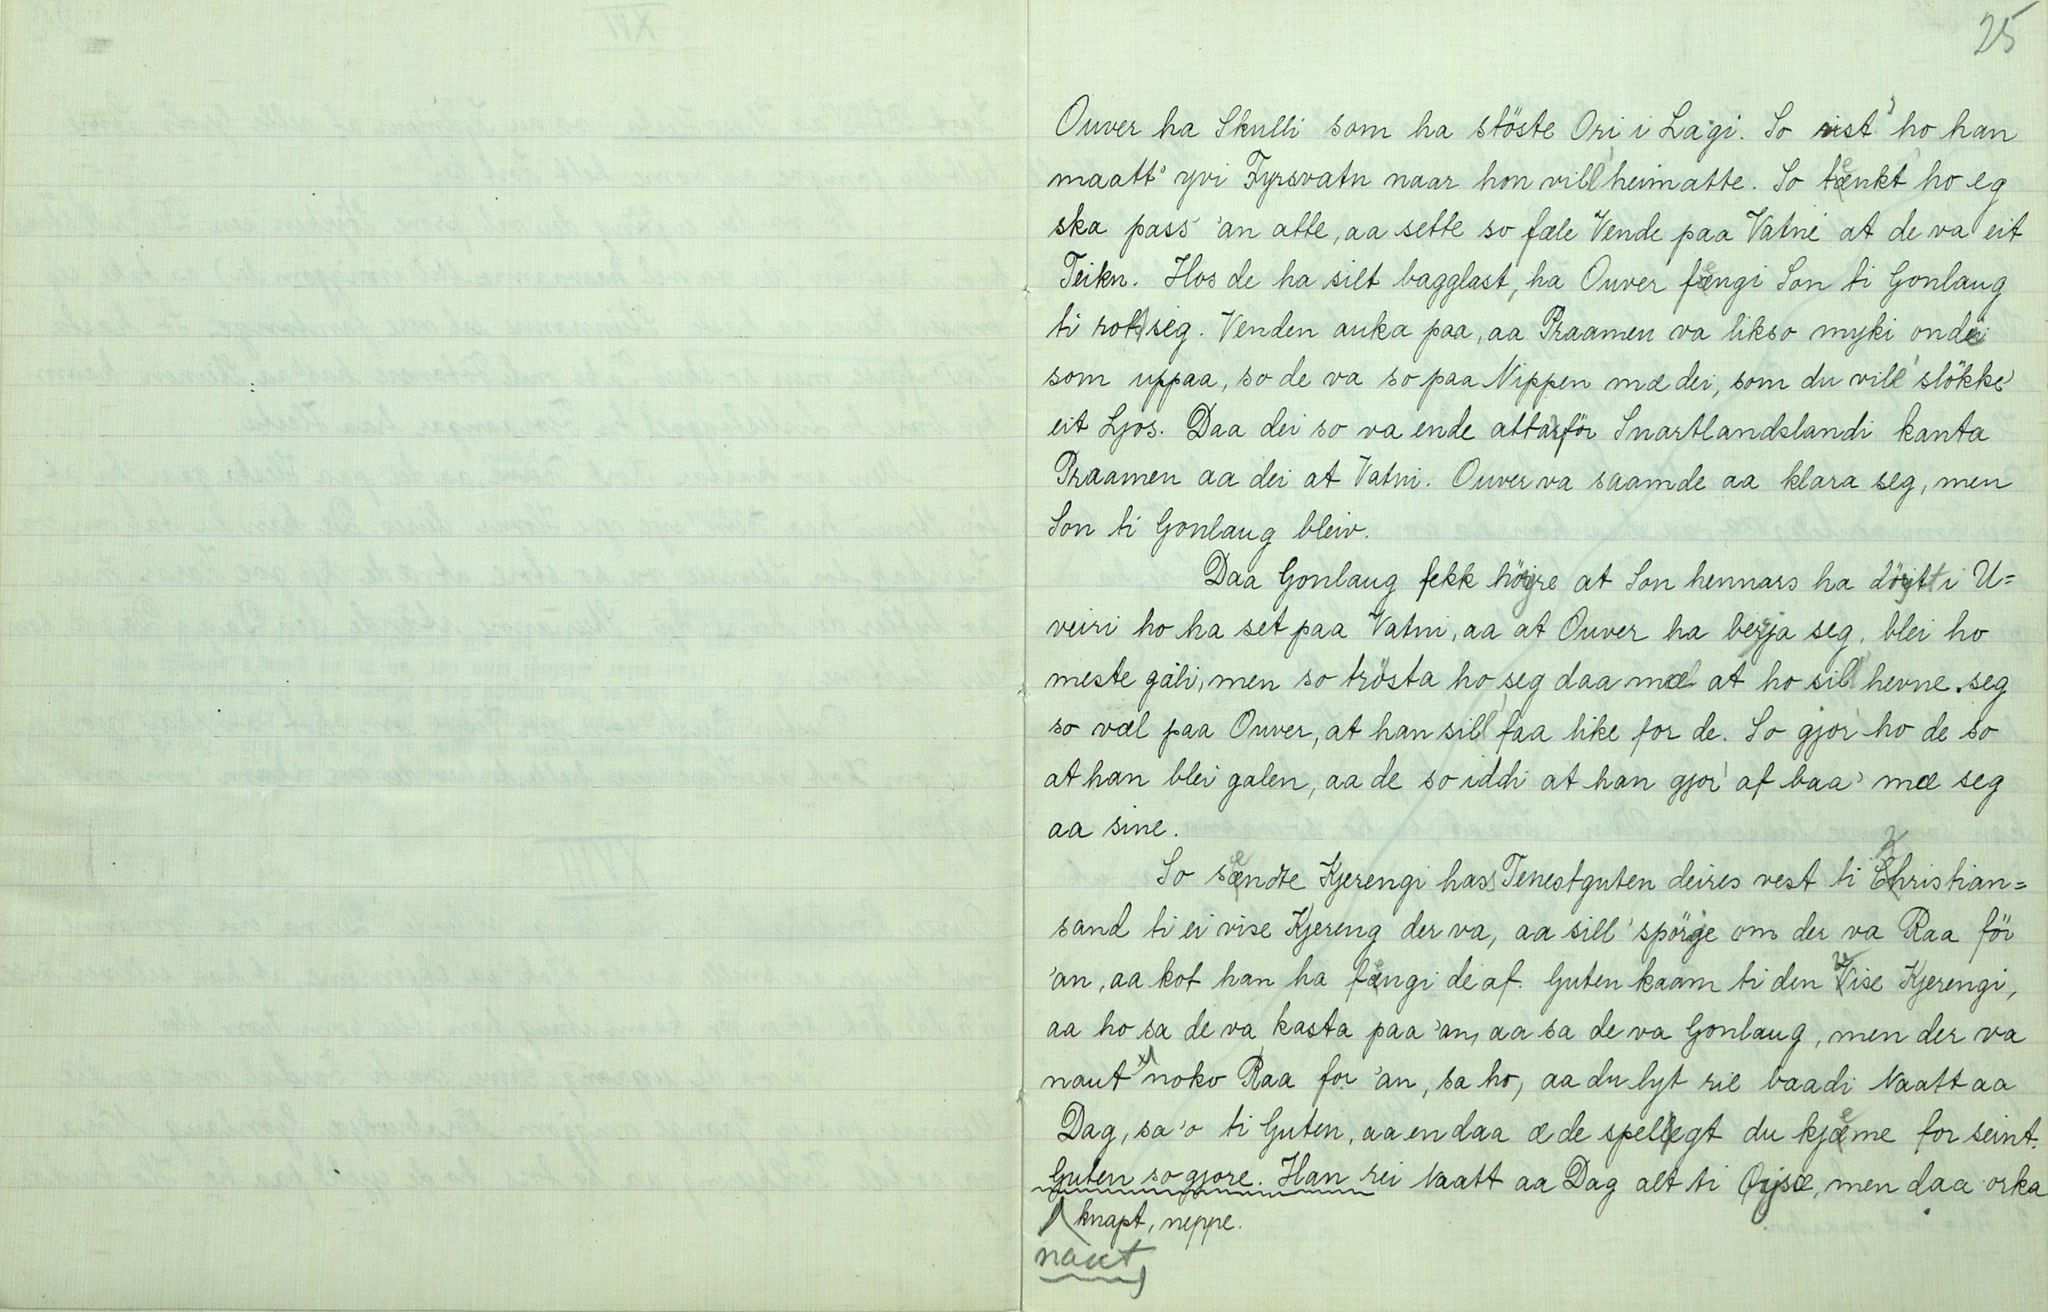 25
Ouver ha Skulli som ha stöste Ori i Lagi. So vist' ho han
maatt' yvi Fyrsvatn naar hon vill heimatte. So tænkt' ho eg
ska pass' 'an atte, aa sette so fæle Vende paa Vatne at de va eit
Teikn. Hos de ha silt bagglast, ha Ouver fængi Son ti Gonlaug
ti rot seg. Venden auka paa, aa Praamen va likso myki onde
som uppaa, so de va so paa Nippen mæ dei, som du vill slökke'
eit Ljos. Daa dei so va ende attaför Snartlandslandi kanta
Praamen aa dei at Vatni. Ouver va saamde aa klara seg, men
Son ti Gonlaug bleiv.
Daa Gonlaug fekk höyre at Son hennars ha döytt i U=
veiri ho ha set paa Vatni, aa at Ouver ha berja seg, blei ho
meste gali, men so trösta ho seg daa mæ at ho sill hevne seg
so væl paa Ouver, at han sill faa like for de. So gjor' ho de so
at han blei galen, aa de so iddi at han gjor' af baa' mæ seg
aa sine.
So sændte Kjerengi hass Tenestguten deires vest ti Christian=
sand ti ei vise Kjereng der va, aa sill' spörge om der va Raa för
'an, aa kot han ha fængi de af. Guten kaam ti den Vise Kjerengi,
aa ho sa de va kasta paa 'an, aa sa de va Gonlaug, men der va
naut x) noko Raa for 'an, sa ho, aa du lyt rie baadi Naatt aa
Dag, sa 'o ti Guten, aa endaa æ de spellegt du kjæme for seint.
Guten so gjore. Han rei Naatt aa Dag alt ti Öysæ, men daa orka
knapt, neppe.
naut